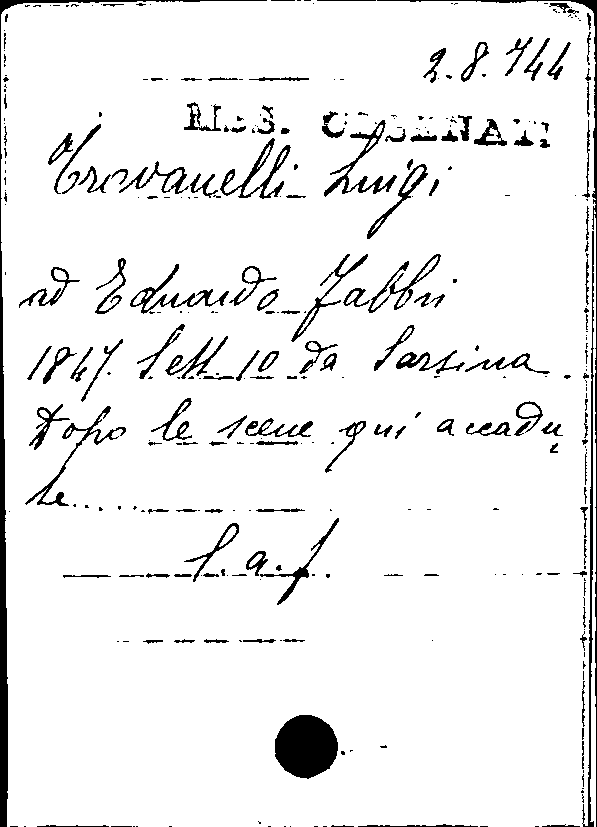 2.8.744
MSS. CESENATI
Trovanelli Luigi
ad Eduardo Fabbri
1847. Sett. 10 da Sarsina.
Dopo le scene qui accadu„
te.....
l. a. f.